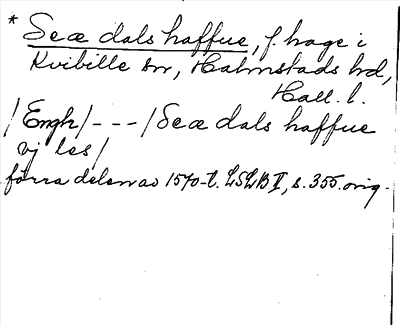 * Seæ dals haffue, f. hage i
Kvibille sn, Halmstads hd,
Hall. l.
/Engh/ - - - /Seæ dals haffue
vj les/
förra delen av 1570-t. LSLB II, s. 355. orig.